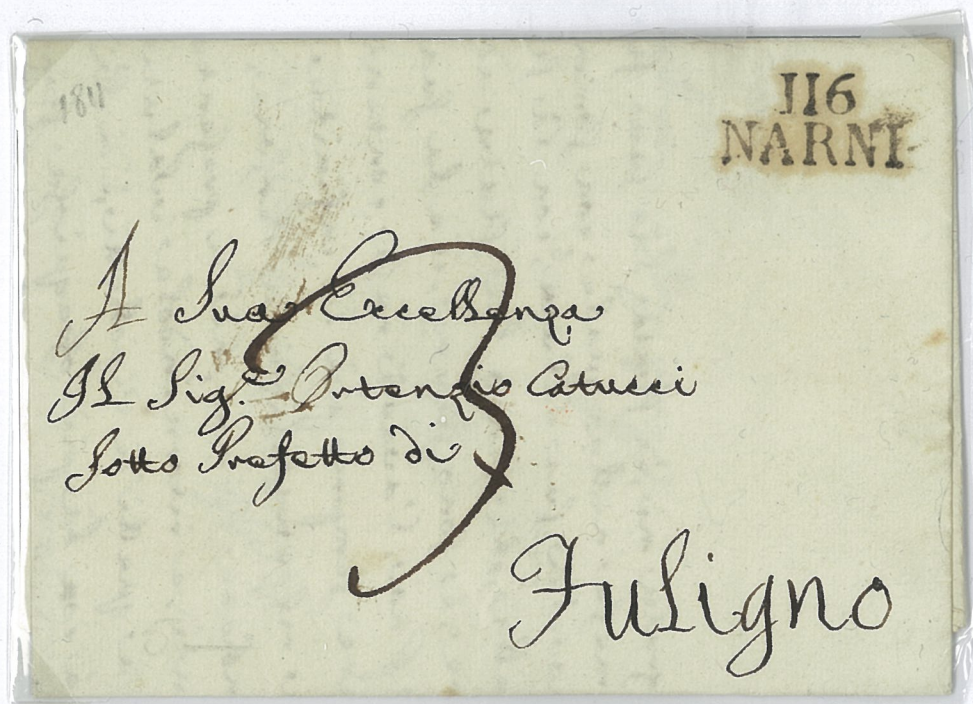 1811
116
NARNI
3
A Sua Eccellenza
Il Sig.e Ortenzio Catucci
Sotto Prefetto di
Fuligno